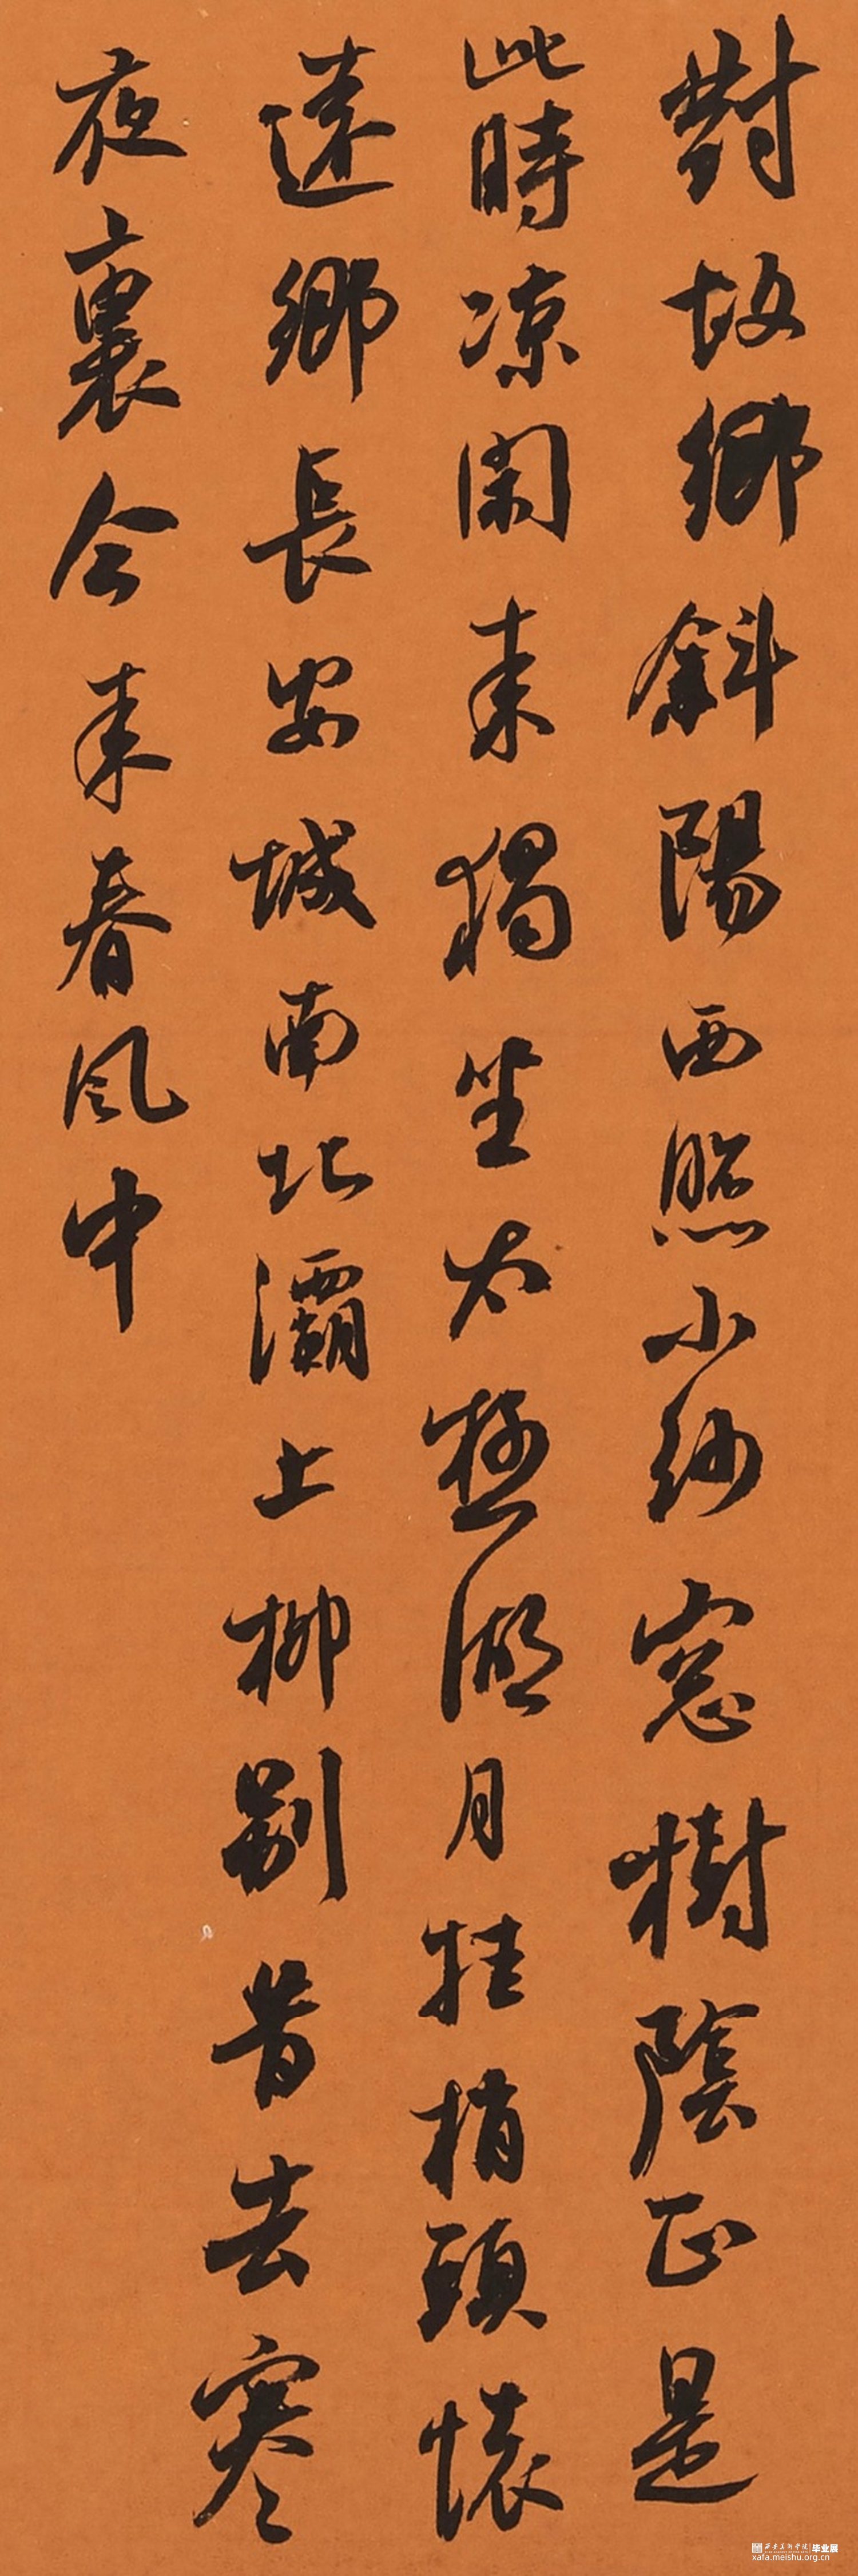 對故鄉斜陽西照小紗窓樹陰正是
此時涼閑来獨坐太極湖月挂梢頭懷
遠鄉長安城南北灞上柳別昔去寒
夜裏今来春風中
西安美術学院 毕业展
xafa.meishu.org.cn